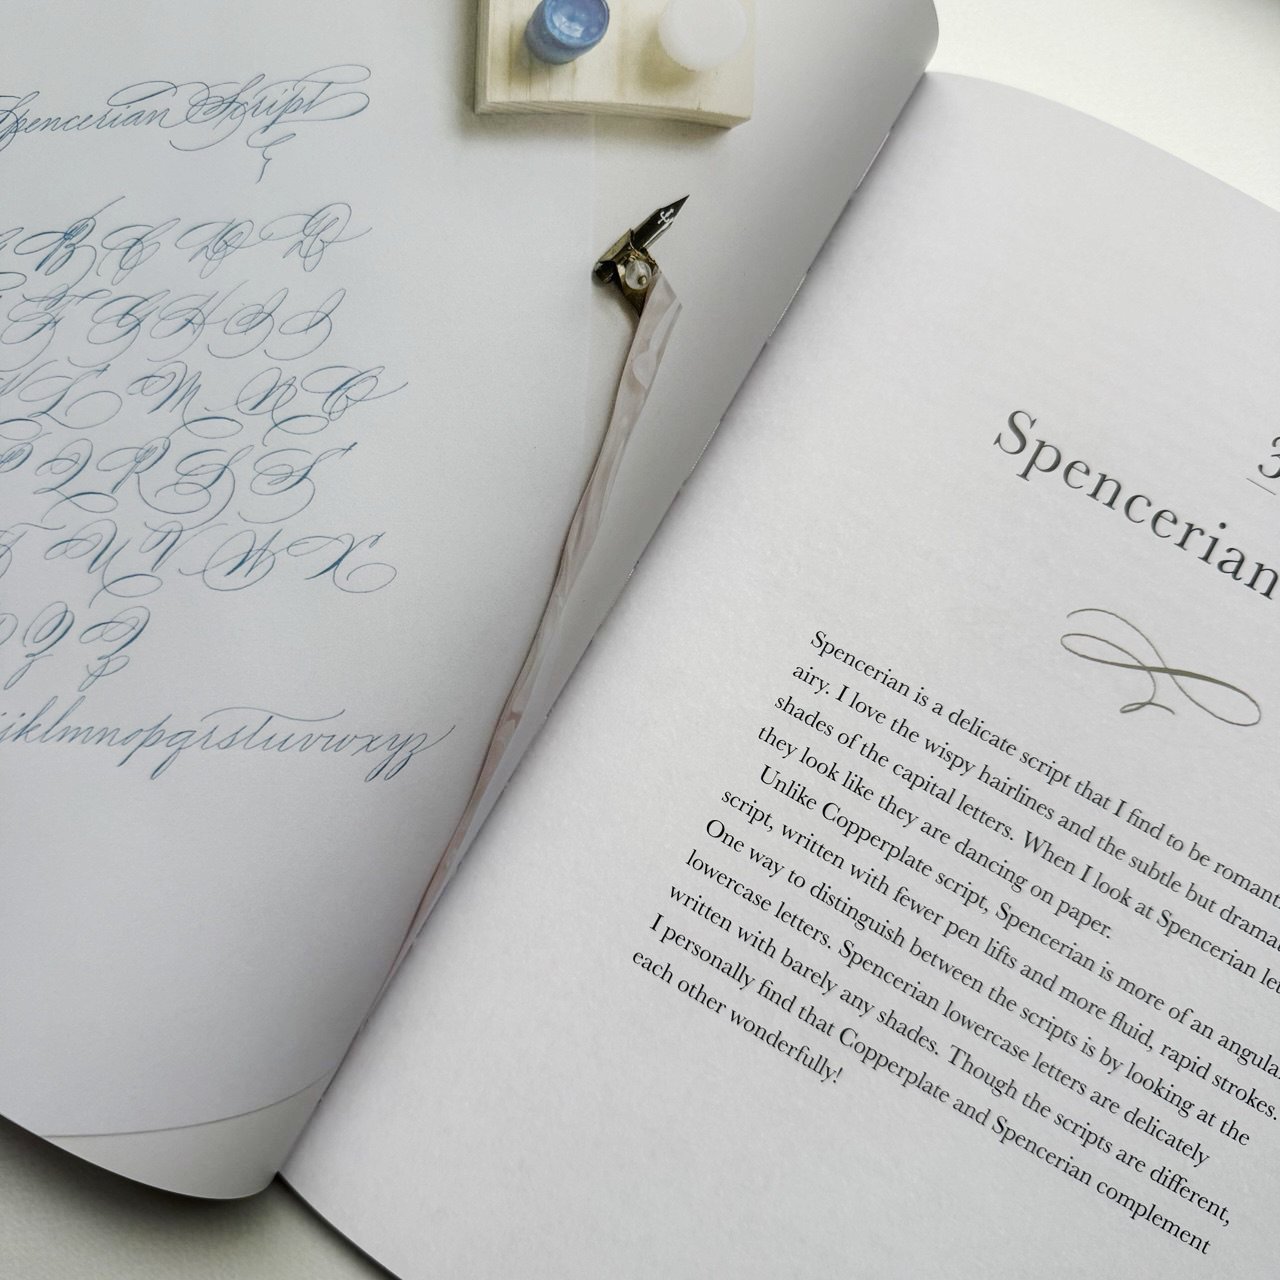 Spencerian Script
B C D D
F G H I J
L M N O
P Q R S S
T U V W X
Y Z
ijklmnopqrstuvwxyz
3
Spencerian
Spencerian is a delicate script that I find to be
airy. I love the wispy hairlines and the subtle but
shades of the capital letters. When I look at Spencerian
they look like they are dancing on paper.
Unlike Copperplate script, Spencerian is more of an
script, written with fewer pen lifts and more fluid, rapid strokes.
One way to distinguish between the scripts is by looking at the
lowercase letters. Spencerian lowercase letters are delicately
written with barely any shades. Though the scripts are different,
I personally find that Copperplate and Spencerian complement
each other wonderfully!